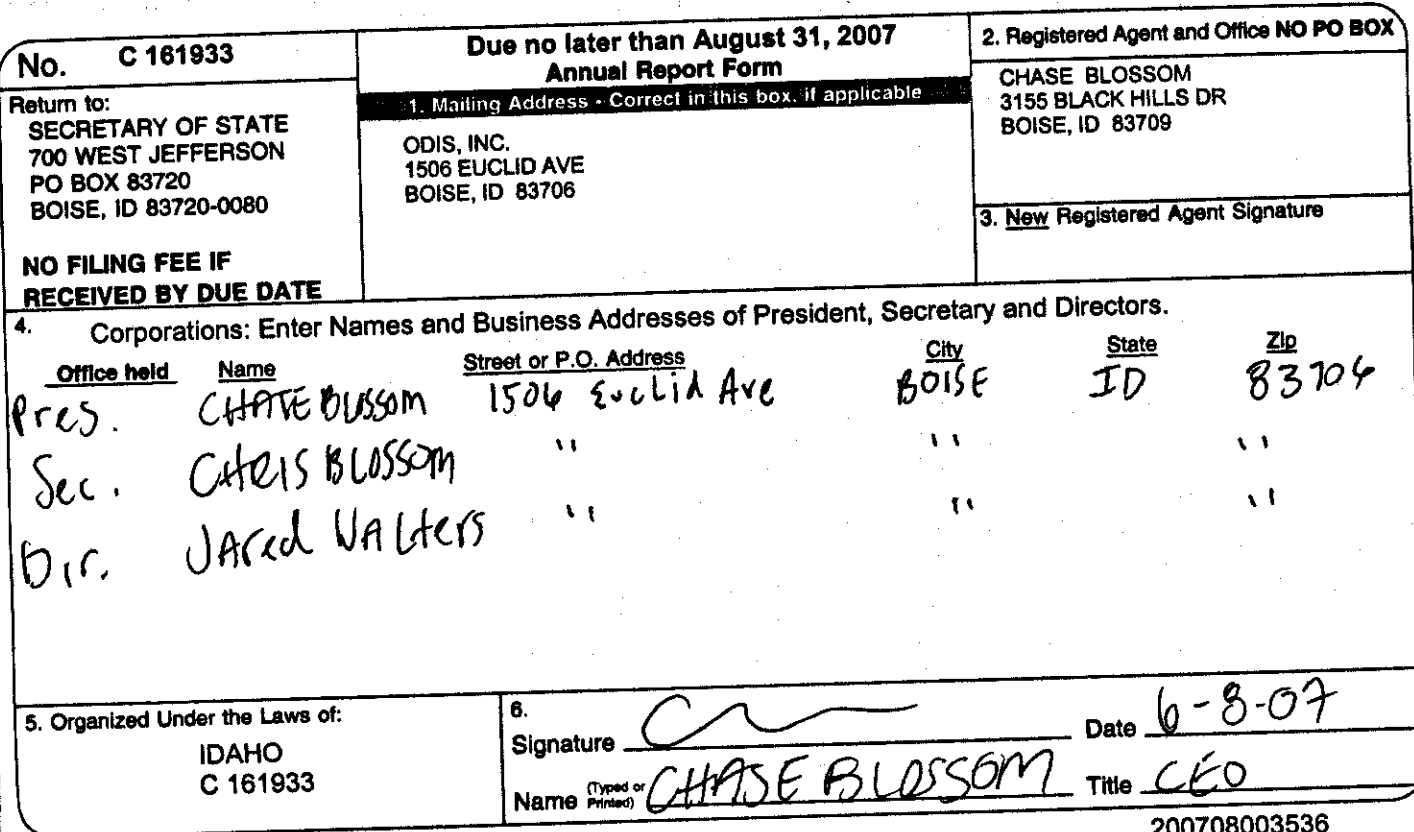 No. C 161933
Return to:
SECRETARY OF STATE
700 WEST JEFFERSON
PO BOX 83720
BOISE, ID 83720-0080
NO FILING FEE IF
RECEIVED BY DUE DATE
Due no later than August 31, 2007
Annual Report Form
1. Mailing Address - Correct in this box, if applicable
ODIS, INC.
1506 EUCLID AVE
BOISE, ID 83706
2. Registered Agent and Office NO PO BOX
CHASE BLOSSOM
3155 BLACK HILLS DR
BOISE, ID 83709
3. New Registered Agent Signature
4. Corporations: Enter Names and Business Addresses of President, Secretary and Directors.
Office held Name Street or P.O. Address City State Zip
Pres. CHASE BLOSSOM 1506 Euclid Ave BOISE ID 83706
Sec. CHRIS BLOSSOM " " "
Dir. JAred WALters " " "
5. Organized Under the Laws of:
IDAHO
C 161933
6.
Signature Date 6-8-07
Name (Typed or Printed) CHASE BLOSSOM Title CEO
200708003536